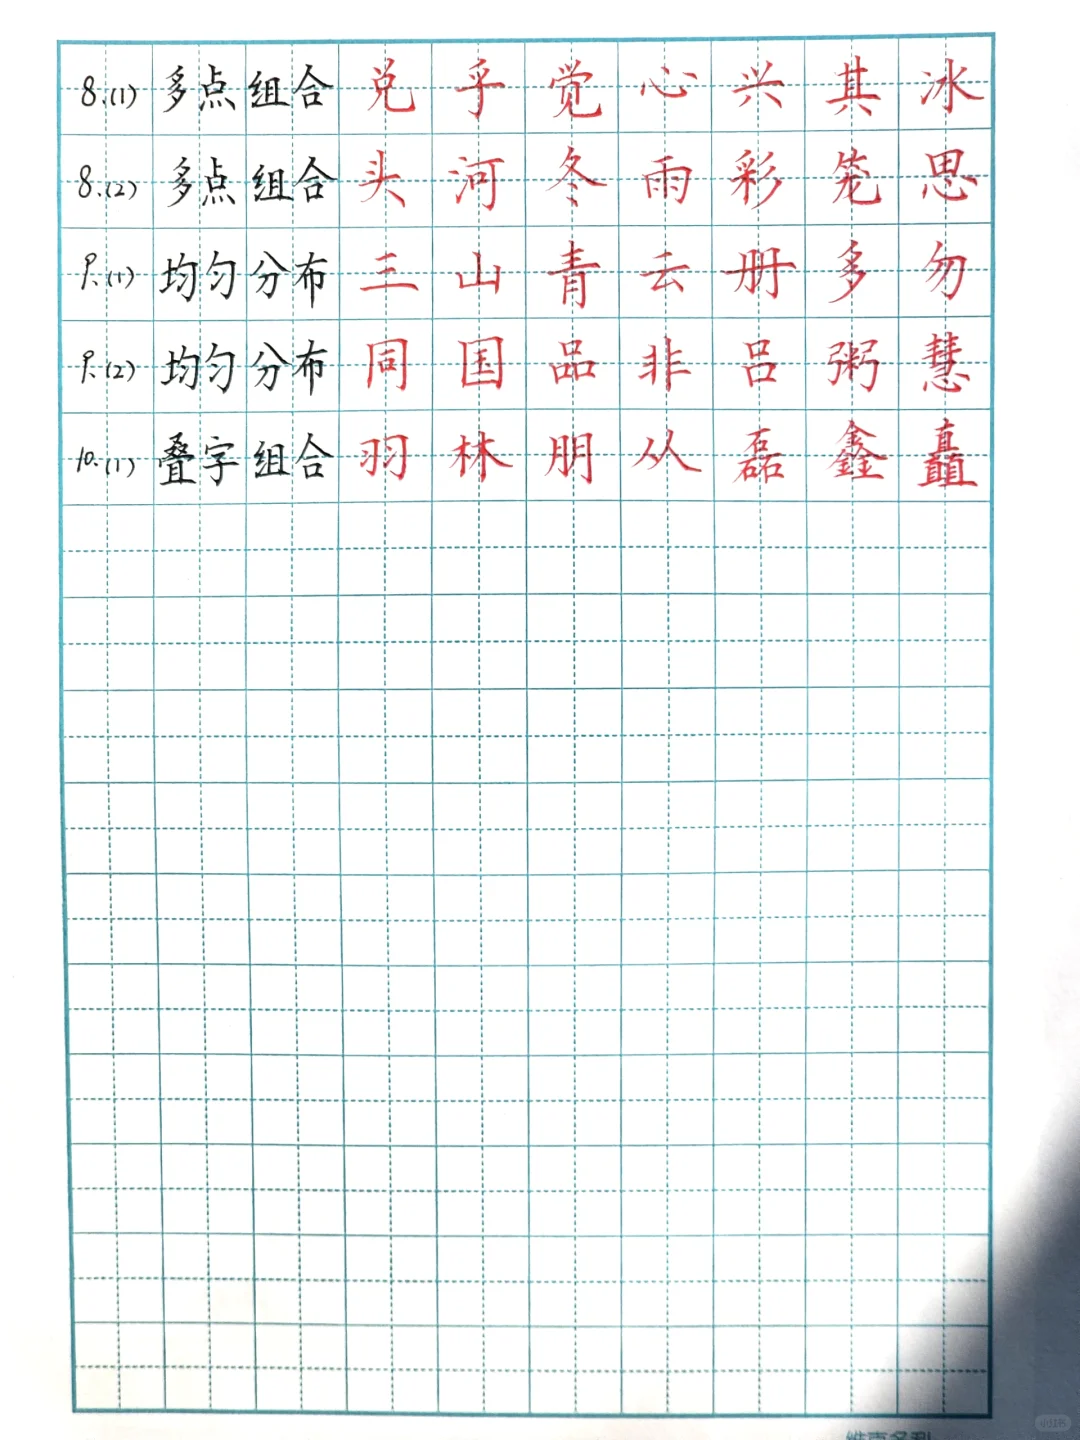 8.(1) 多点组合 兑 乎 觉 心 兴 其 冰
8.(2) 多点组合 头 河 冬 雨 彩 笼 思
9.(1) 均匀分布 三 山 青 云 册 多 勿
9.(2) 均匀分布 同 国 品 非 吕 粥 慧
10.(1) 叠字组合 羽 林 朋 从 磊 鑫 矗
小红书